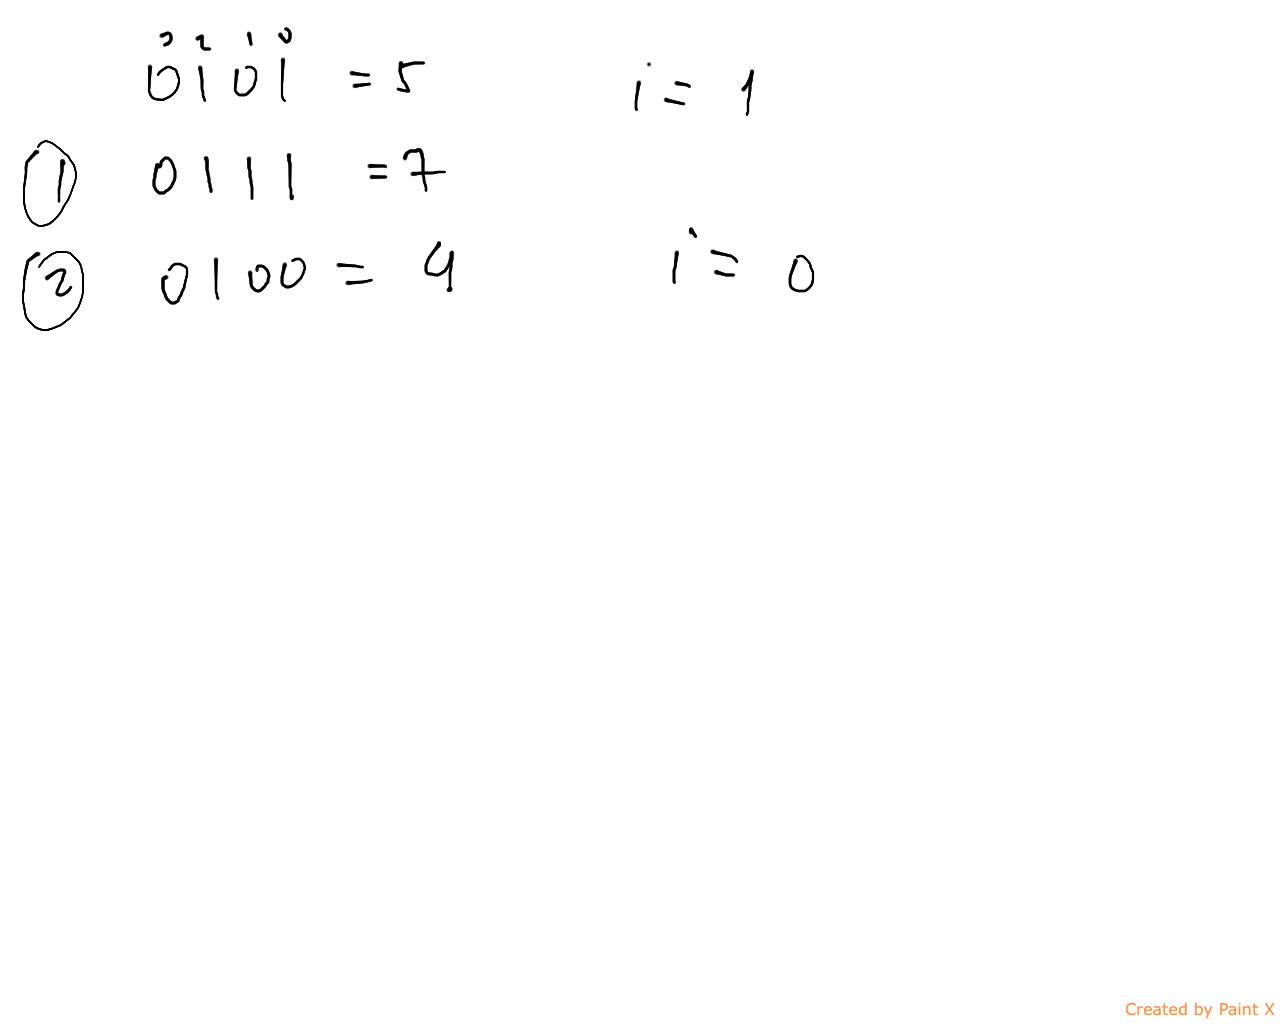 3 2 1 0
0101 = 5 i = 1
1 0111 = 7
2 0100 = 4 i = 0
Created by Paint X